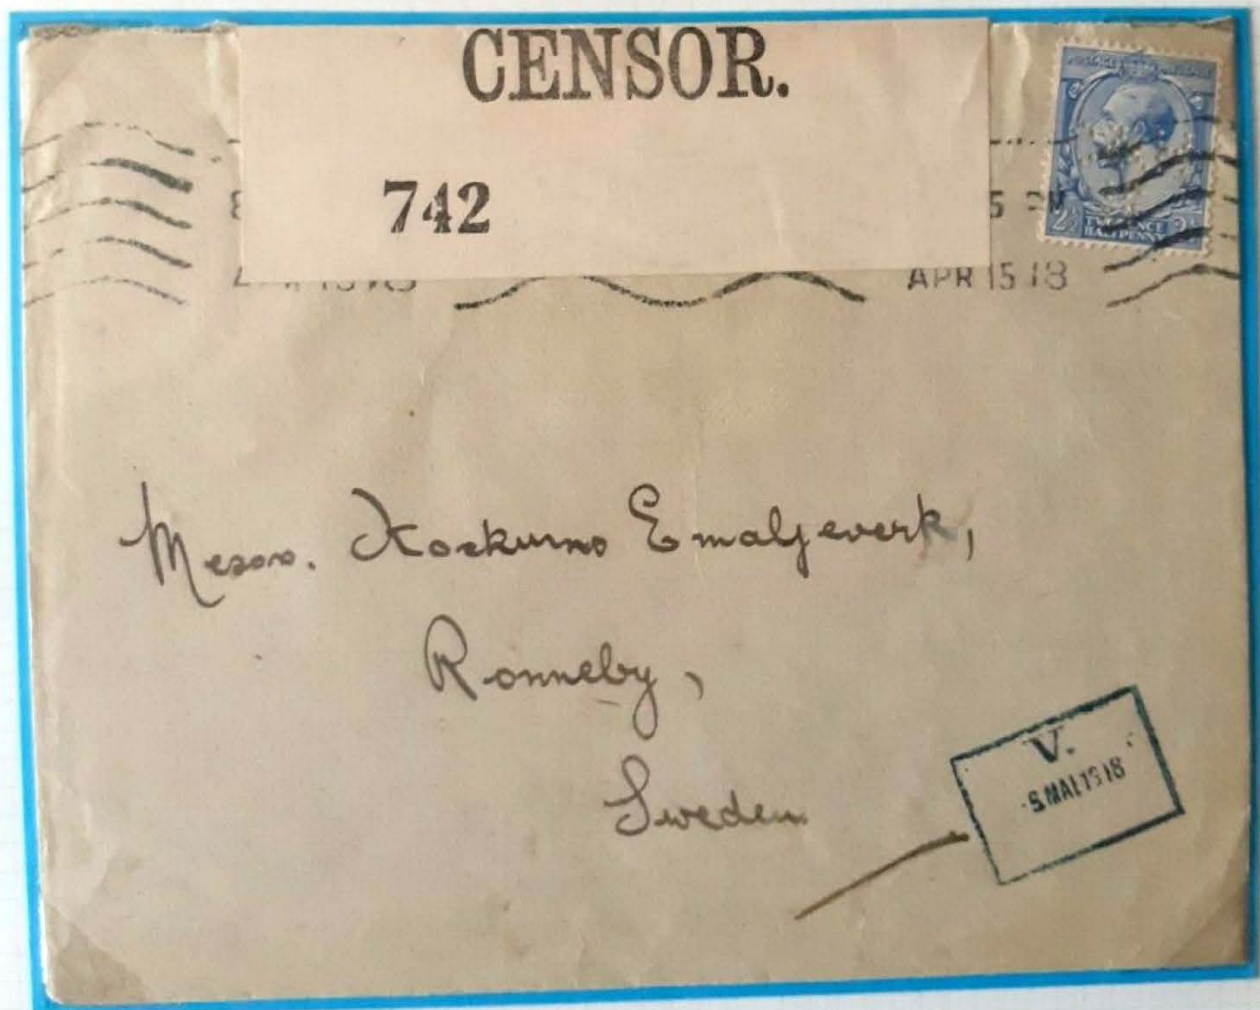 CENSOR.
742
5 PM
APR 15 18
2½ TWOPENCE HALFPENNY 2½
Messrs. Kockums Emaljeverk,
Ronneby,
Sweden
V.
MAI 1918